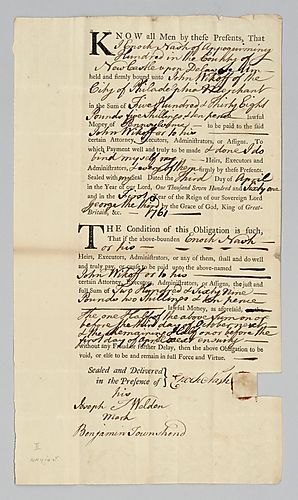 KNOW all Men by these Presents, That
I Enoch Nash of Appoquinimy
Hundred in the County of
New Castle upon Delaware Am
held and firmly bound unto John Wikoff of the
City of Philadelphia Merchant
in the Sum of Five Hundred & Thirty Eight
Pounds five Shillings & ten pence lawful
Money of Pennsylvania to be paid to the said
John Wikoff or to his
certain Attorney, Executors, Administrators, or Assigns. To
which Payment well and truly to be made I do
bind myself my Heirs, Executors and
Administrators firmly by these Presents.
Sealed with my Seal Dated the third Day of April
in the Year of our Lord, One Thousand Seven Hundred and Sixty one
and in the First Year of the Reign of our Sovereign Lord
George the third by the Grace of God, King of Great-
Britain, &c. 1761
THE Condition of this Obligation is such,
That if the above-bounden Enoch Nash
or his
Heirs, Executors, Administrators, or any of them, shall and do well
and truly pay, or cause to be paid unto the above-named
John Wikoff or to his
certain Attorney, Executors, Administrators, or Assigns, the just and
full Sum of Two Hundred & Sixty Nine
Pounds two Shillings & ten pence
lawful Money, as aforesaid,
The one Half of the above Sum on or
before the third day of October next
& the remaining Half on or before the
first day of ensuing
without any Fraud or further Delay, then the above Obligation to be
void, or else to be and remain in full Force and Virtue.
Sealed and Delivered
in the Presence of
Enoch Nash
his
Joseph Weldon
mark
Benjamin Townshend